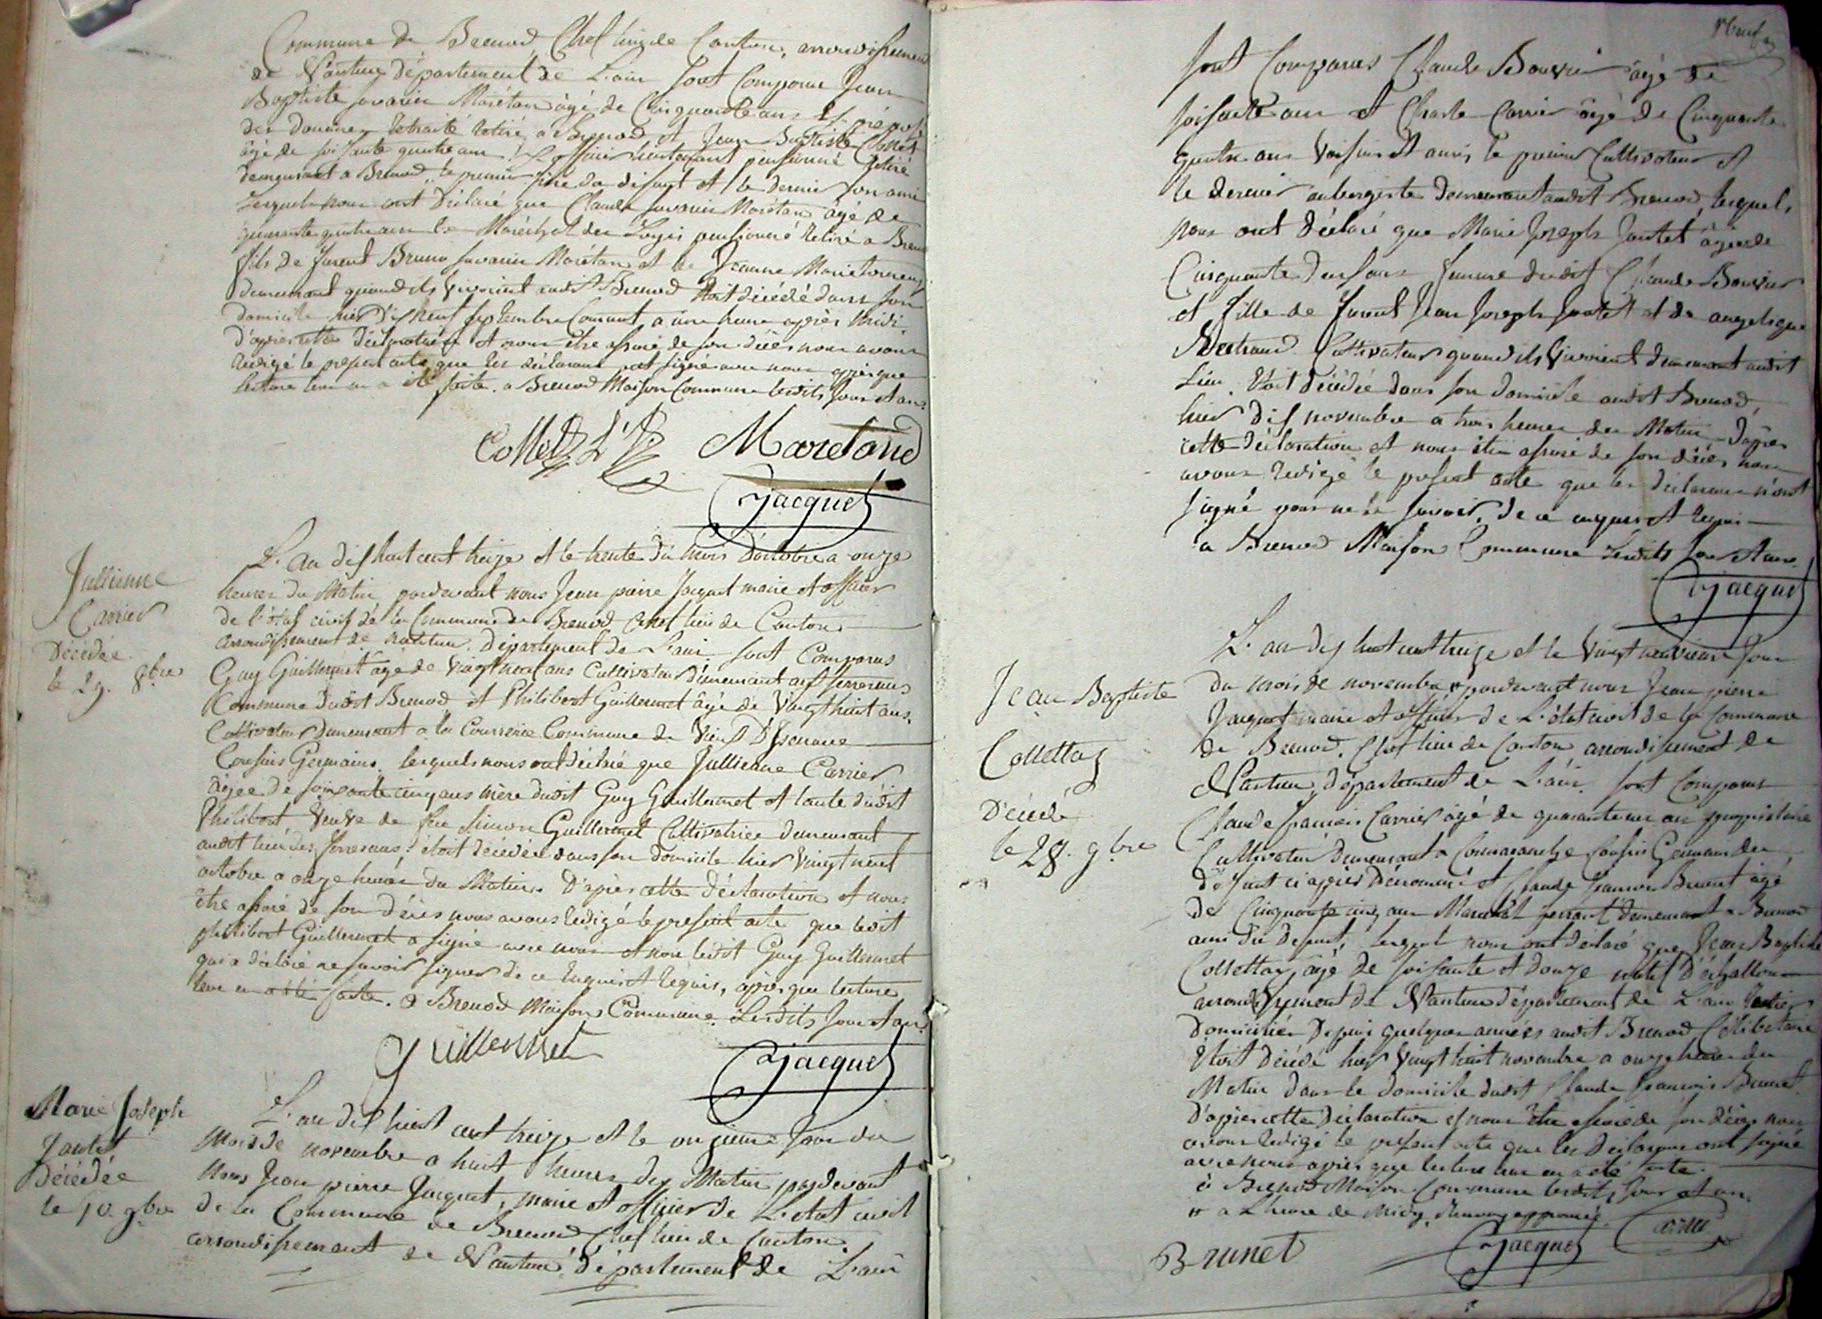 Commune de Brenod Chef lieu de Canton, arrondissement
de Nantua département de L'ain sont Comparus Jean
Baptiste savarin Marétan âgé de Cinquante ans Ex préposé
des Douanes retraité retiré a Brenod et Jean Baptiste Collet
âgé de soixante quatre ans officier lieutenant pensionné retiré
demeurant a Brenod le premier frère du défunt et le dernier son ami
Lesquels nous ont Déclaré que Claude savarin Marétan âgé de
quarante quatre ans Maréchal des Logis pensionné retiré a Brenod
fils de furent Bruno savarin Marétan et de Jeanne Marie
demeurant quand ils vivoient audit Brenod Etoit décédé dans son
domicile hier Dix neuf septembre Courant a une heure après Midi.
D'après cette déclaration et nous être assuré de son décès nous avons
rédigé le présent acte que les déclarans ont signé avec nous après que
lecture leur en a été faite. a Brenod Maison Commune lesdits Jour et an.
Collet Maretand
Jacquet
Jullienne
Carrier
Décédée
le 29. 8bre
L'an dix huit cent treize et le trente du mois d'octobre a onze
heures du Matin pardevant nous Jean pierre Jacquet maire et officier
de l'état civil de la Commune de Brenod Chef lieu de Canton
arrondissement de Nantua. Département de L'ain sont Comparus
Guy Guillermet âgé de vingt neuf ans Cultivateur demeurant aux
Commune dudit Brenod et Philibert Guillermet âgé de vingt huit ans.
Cultivateur demeurant a la Commune de Vieu D'Isenave
Cousins Germains. lesquels nous ont déclaré que Jullienne Carrier
âgée de soixante cinq ans mère dudit Guy Guillermet et tante dudit
Philibert Veuve de feu Simon Guillermet Cultivatrice demeurant
audit lieu des etoit décédée dans son domicile hier vingt neuf
octobre a onze heures du Matin. D'après cette déclaration et nous
être assuré de son décès nous avons rédigé le présent acte que ledit
philibert Guillermet a signé avec nous et non ledit Guy Guillermet
qui a déclaré ne savoir signer de ce Enquis et Réquis, après que lecture
leur en a été faite. a Brenod Maison Commune. Lesdits Jour et an.
Guillermet
Jacquet
Marie Joseph
Jantet
Décédée
le 10 9bre
L'an dix huit cent treize et le onzieme Jour du
Mois de novembre a huit heures du Matin pardevant
Nous Jean pierre Jacquet, maire et officier de L'état civil
De la Commune de Brenod Chef lieu de Canton.
arrondissement de Nantua département de L'ain
sont Comparus Claude Bouvier âgé de
soixante ans et Charle Carrier âgé de Cinquante
quatre ans Voisins et amis le premier Cultivateur et
le dernier aubergiste demeurant audit Brenod, lesquels
nous ont déclaré que Marie Joseph Jantet âgée de
Cinquante deux ans femme dudit Claude Bouvier
et fille de furent Jean Joseph Jantet et de angelique
Bertrand Cultivateurs quand ils vivoient demeurant audit
Lieu. Etoit décédée dans son domicile audit Brenod,
hier dix novembre a trois heures du Matin. D'après
cette déclaration et nous être assuré de son décès nous
avons rédigé le présent acte que les déclarans n'ont
signé pour ne le savoir, de ce enquis et requis
a Brenod Maison Commune Lesdits Jour et an.
Jacquet
Jean Baptiste
Collettaz
Décédé
le 28. 9bre
L'an dix huit cent treize et le vingt neuvieme Jour
du mois de novembre pardevant nous Jean pierre
Jacquet maire et officier de L'état civil de la Commune
de Brenod. Chef lieu de Canton arrondissement de
Nantua, département de L'ain. sont Comparus
Claude francois Carrier âgé de quarante un ans propriétaire
Cultivateur demeurant a Cousin Germain du
défunt ci après Dénommé et Claude francois Brunet âgé
de Cinquante cinq ans Maréchal ferrant demeurant a Brenod
ami du défunt, lesquels nous ont déclaré que Jean Baptiste
Collettaz, âgé de soixante et douze natif D'échallon
arrondissement de Nantua département de L'ain
Domicilié Depuis quelques années audit Brenod Célibataire
Etoit décédé hier vingt huit novembre a onze heures du
Matin dans le domicile dudit Claude francois Brunet.
D'après cette Déclaration et nous être assuré de son décès nous
avons rédigé le présent acte que les Déclarans ont signé
avec nous après que lecture leur en a été faite.
a Brenod Maison Commune lesdits Jour et an.
a L'heure de Midy, Renvoy approuvé.
Brunet Jacquet Carrier